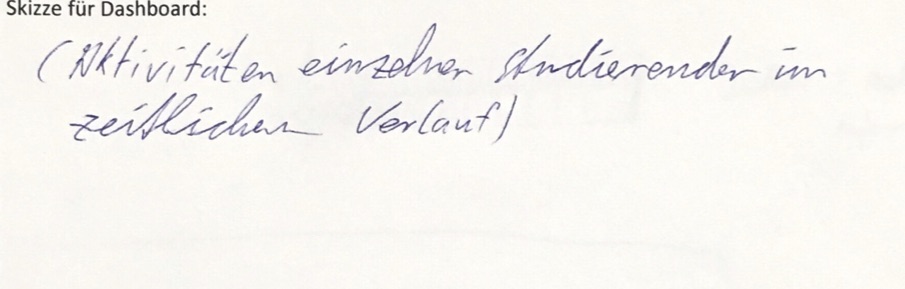 Skizze für Dashboard:
(Aktivitäten einzelner Studierender im
zeitlichen Verlauf)